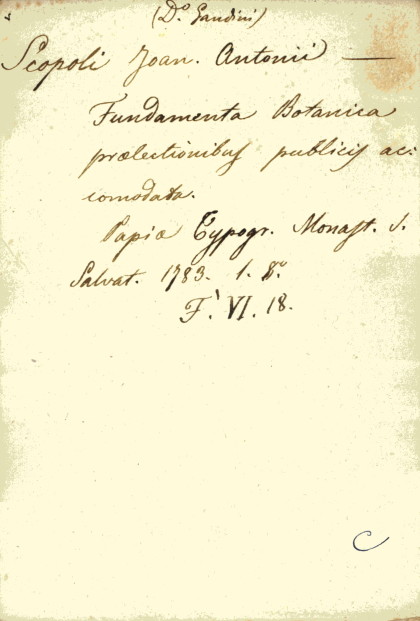 (D.º Gandini)
Scopoli Joan. Antonii —
Fundamenta Botanica
prælectionibus publicis ac:
comodata.
Papiæ Typogr. Monast. S.
Salvat. 1783. 1. 8.º
F. VI. 18.
C